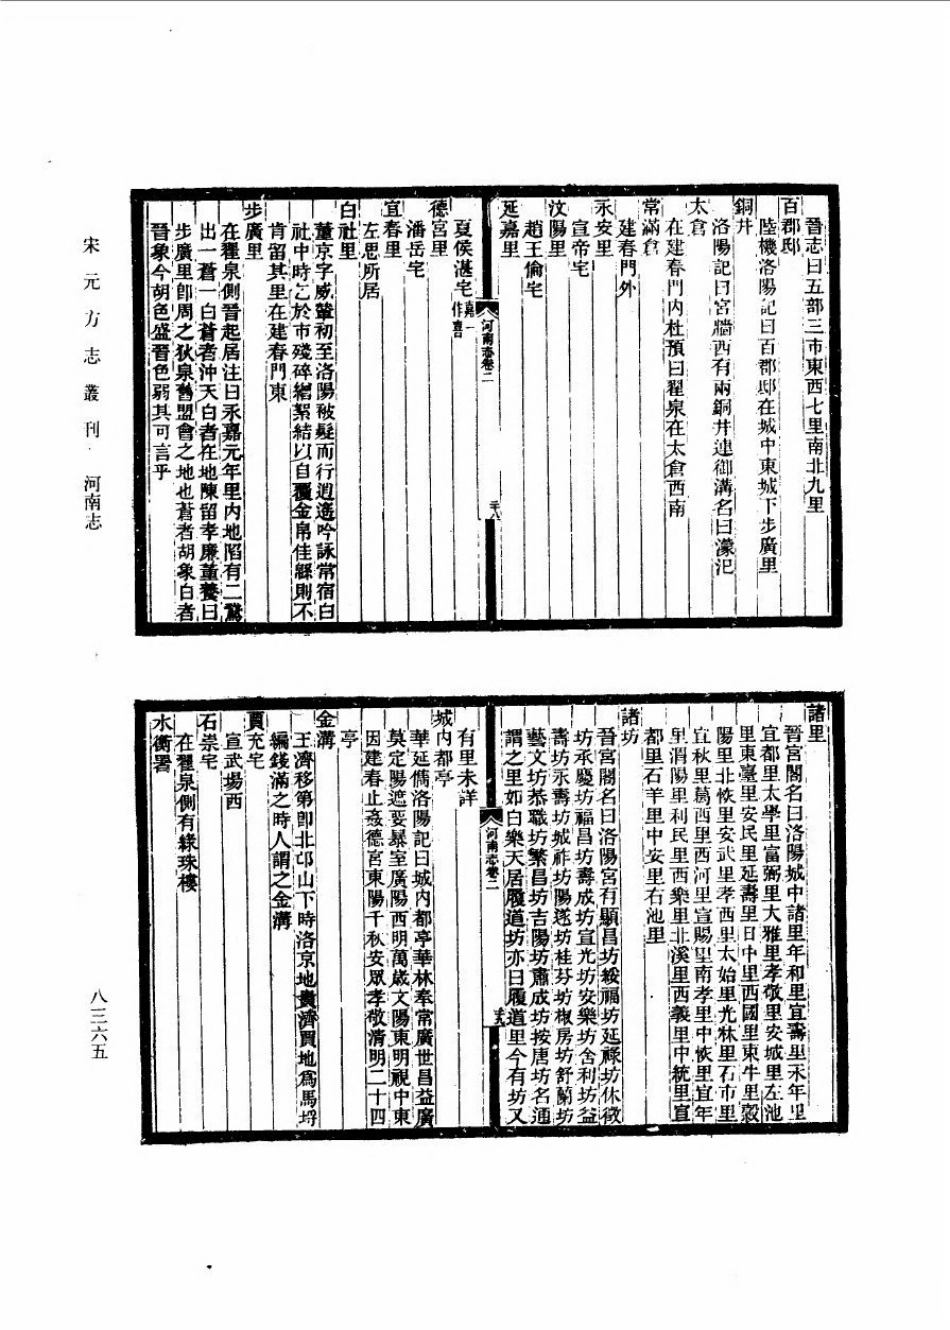 晉志曰五部三市東西七里南北九里
百郡邸
陸機洛陽記曰百郡邸在城中東城下步廣里
銅井
洛陽記曰宮牆西有兩銅井連御溝名曰濛汜
太倉
在建春門內杜預曰翟泉在太倉西南
常滿倉
建春門外
永安里
宣帝宅
汶陽里
趙王倫宅
延嘉里
河南志卷二
夏侯湛宅嘉一作喜
德宮里
潘岳宅
宜春里
左思所居
白社里
董京字威輦初至洛陽被髮而行逍遙吟詠常宿白
社中時乞於市殘碎繒絮結以自覆金帛佳緜則不
肯留其里在建春門東
步廣里
在翟泉側晉起居注曰永嘉元年里內地陷有二鵞
出一蒼一白蒼者沖天白者在地陳留孝廉董養曰
步廣里即周之狄泉舊盟會之地也蒼者胡象白者
晉象今胡色盛晉色弱其可言乎
諸里
晉宮閣名曰洛陽城中諸里年和里宜壽里永年里
宜都里太學里富弼里大雅里孝敬里安城里左池
里東臺里安民里延壽里日中里西國里東牛里穀
陽里北恢里安武里孝西里太始里光林里石市里
宜秋里葛西里西河里宣賜里南孝里中恢里宜年
里渭陽里利民里西樂里北溪里西義里中統里宣
都里石羊里中安里右池里
諸坊
晉宮閣名曰洛陽宮有顯昌坊綏福坊延祿坊休徵
坊承慶坊福昌坊壽成坊宣光坊安樂坊舍利坊益
壽坊永壽坊城祚坊陽遂坊桂芬坊椒房坊舒蘭坊
藝文坊恭職坊繁昌坊吉陽坊肅成坊按唐坊名通
謂之里如白樂天居履道坊亦曰履道里今有坊又
河南志卷二
有里未詳
城內都亭
華延儁洛陽記曰城內都亭華林奉常廣世昌益廣
莫定陽遮要暴室廣陽西明萬歲文陽東明視中東
因建春止姦德宮東陽千秋安眾孝敬清明二十四
亭
金溝
王濟移第即北邙山下時洛京地貴濟買地為馬埒
編錢滿之時人謂之金溝
賈充宅
宣武場西
石崇宅
在翟泉側有綠珠樓
水衡署
宋元方志叢刊·河南志
八三六五